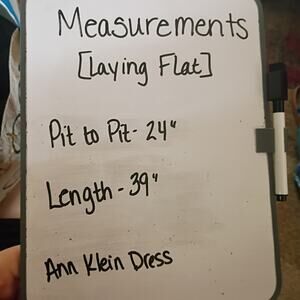 Measurements
[Laying Flat]
Pit to Pit - 24"
Length - 39"
Ann Klein Dress